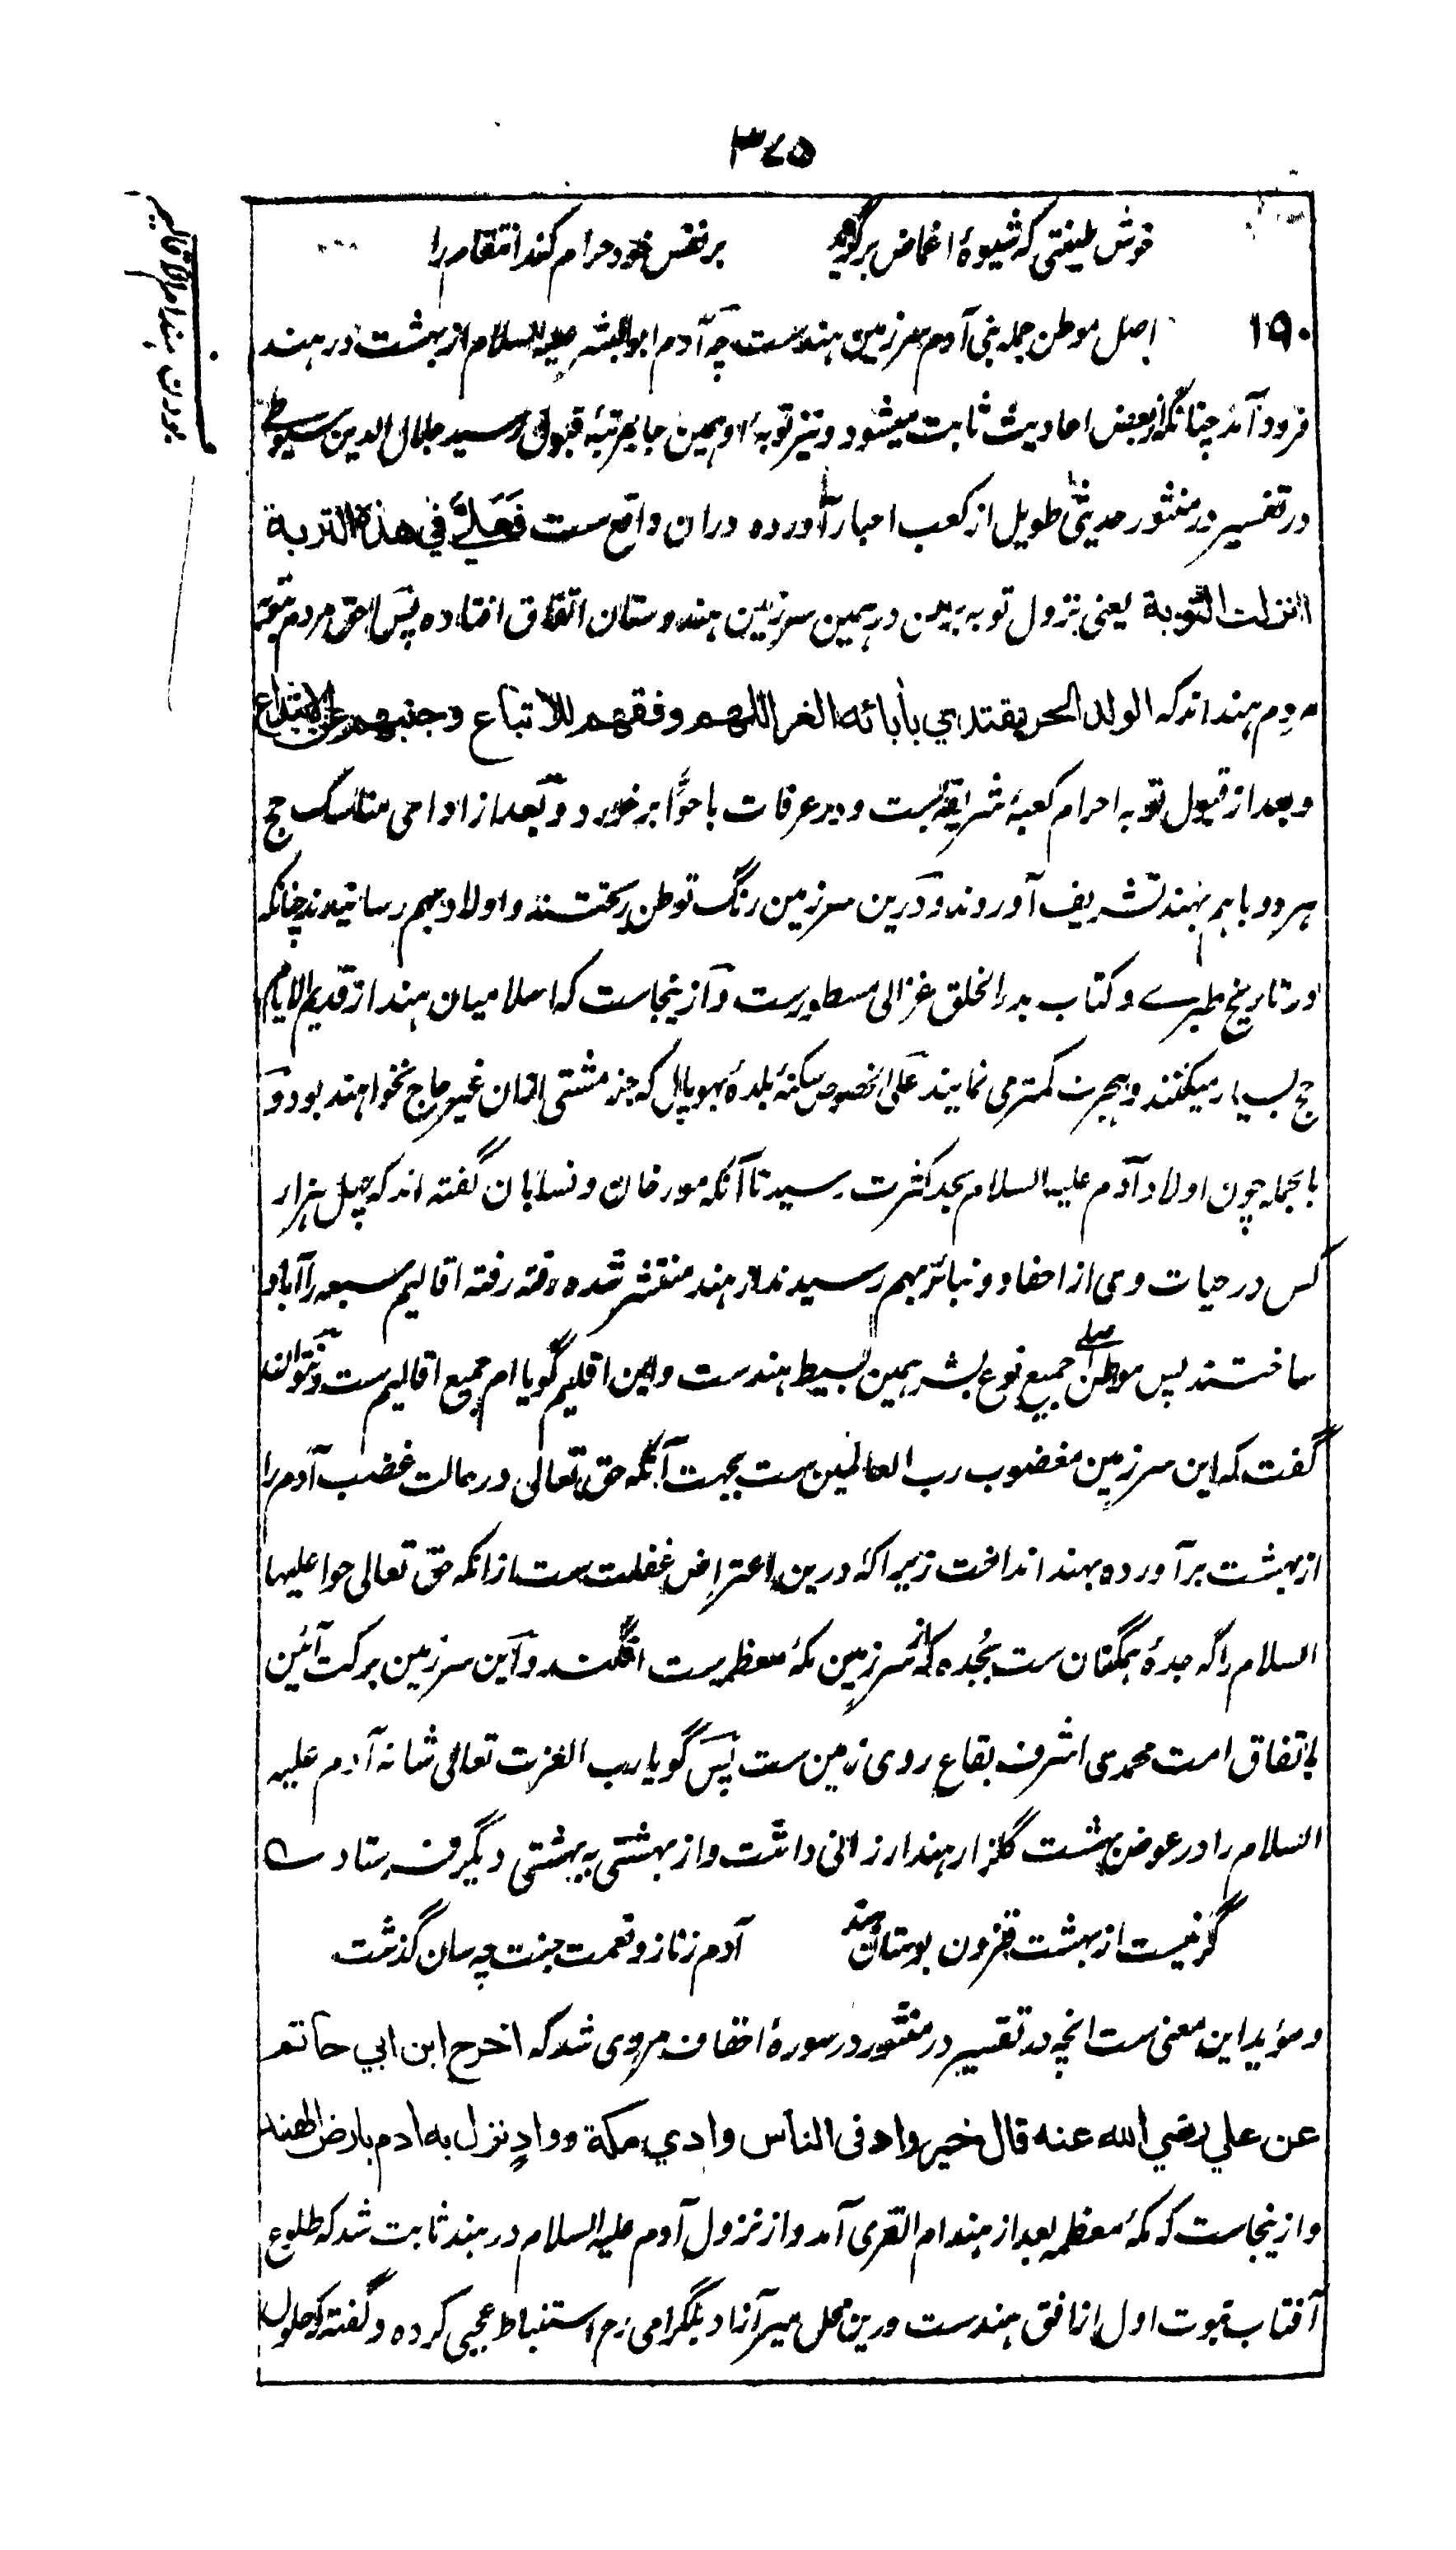 ۳۷۵
خوش طینتی که شیوهٔ اغماض برگزید بر نفس خود حرام کند انتقام را
۱۹۰ اصل موطن جمله بنی آدم سرزمین هندست چه آدم ابوالبشر علیه السلام از بهشت در هند
فرود آمد چنانکه از بعض احادیث ثابت میشود و نیز توبهٔ او همین جا بمرتبهٔ قبول رسید جلال الدین سیوطی
در تفسیر در منثور حدیثی طویل از کعب احبار آورده دران واقع ست فَعَلَيَّ في هذه التربة
انزلت التوبة یعنی نزول توبه بر من در همین سرزمین هندوستان اتفاق افتاده پس احق مردم بتوبه
مردم هند اند که الولد الحر يقتدي بأبائه الغر اللهم وفقهم للاتباع وجنبهم عن الابتداع
و بعد از قبول توبه احرام کعبهٔ شریفه بست و در عرفات با حوّا برخورد و بعد از ادای مناسک حج
هر دو باهم بهند تشریف آوردند و درین سرزمین رنگ توطن ریختند و اولاد بهم رسانیدند چنانکه
در تاریخ طبرے و کتاب بدر الخلق غزالی مسطورست و ازینجاست که اسلامیان هند از قدیم الایام
حج بسیار میکنند و هجرت کمتر می نمایند علی الخصوص سکنهٔ بلدهٔ بهوپال که جز مشتی افغان غیر حاج نخواهند بود و
بالجمله چون اولاد آدم علیه السلام بحد کثرت رسید تا آنکه مورخان و نسابان گفته اند که چهل هزار
کس در حیات وی از احفاد و نبائر بهم رسیدند از هند منتشر شده رفته رفته اقالیم سبعه را آباد
ساختند پس موطن اصلے جمیع نوع بشر همین بسیط هندست و این اقلیم گویا ام جمیع اقالیم ست و نتواند
گفت که این سرزمین مغضوب رب العالمین ست بجهت آنکه حق تعالی در حالت غضب آدم را
از بهشت برآورده بهند انداخت زیرا که درین اعتراض غفلت ست ازانکه حق تعالی حوا علیها
السلام را که جدهٔ همگنان ست بجُده که از سرزمین مکهٔ معظمه ست افگند و این سرزمین برکت آئین
باتفاق امت محمدی اشرف بقاع روی زمین ست پس گویا رب العزت تعالی شانه آدم علیه
السلام را در عوض بهشت گلزار هند ارزانی داشت و از بهشتی به بهشتی دیگر فرستاد ے
گر نیست از بهشت فزون بوستان هند آدم ز ناز و نعمت جنت چه سان گذشت
و مؤید این معنی ست انچه در تفسیر در منثور در سورهٔ احقاف مروی شد که اخرج ابن ابي حاتم
عن علي رضي الله عنه قال خير واد فى الناس وادي مكة وواد نزل به ادم بارض الهند
و ازینجاست که مکهٔ معظمه بعد از هند ام القری آمد و از نزول آدم علیه السلام در هند ثابت شد که طلوع
آفتاب نبوت اول از افق هندست و درین محل میر آزاد بلگرامی رح استنباط عجبی کرده و گفته که حلول